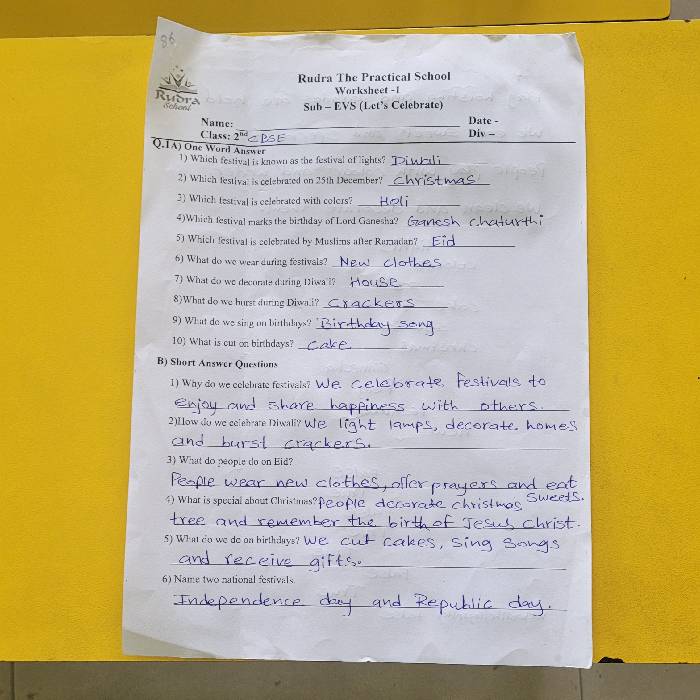 86
Rudra
School
Rudra The Practical School
Worksheet -1
Sub – EVS (Let's Celebrate)
Name: Date -
Class: 2nd CBSE Div –
Q.1A) One Word Answer
1) Which festival is known as the festival of lights? Diwali
2) Which festival is celebrated on 25th December? Christmas
3) Which festival is celebrated with colors? Holi
4)Which festival marks the birthday of Lord Ganesha? Ganesh chaturthi
5) Which festival is celebrated by Muslims after Ramadan? Eid
6) What do we wear during festivals? New clothes
7) What do we decorate during Diwali? House
8)What do we burst during Diwali? Crackers
9) What do we sing on birthdays? Birthday song
10) What is cut on birthdays? Cake
B) Short Answer Questions
1) Why do we celebrate festivals? We celebrate festivals to
enjoy and share happiness with others.
2)How do we celebrate Diwali? We light lamps, decorate homes
and burst crackers.
3) What do people do on Eid?
People wear new clothes, offer prayers and eat
sweets.
4) What is special about Christmas? People decorate christmas
tree and remember the birth of Jesus Christ.
5) What do we do on birthdays? We cut cakes, sing songs
and receive gifts.
6) Name two national festivals.
Independence day and Republic day.